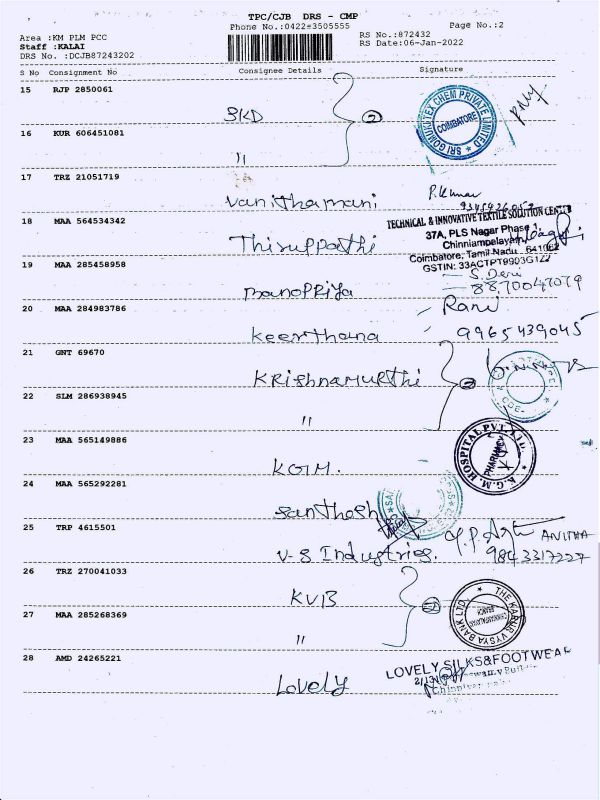 TPC/CJB DRS - CMP
Phone No.:0422-3505555
Page No.:2
Area :KM PLM PCC
Staff :KALAI
DRS No. :DCJB87243202
RS No.:872432
RS Date:06-Jan-2022
S No Consignment No Consignee Details Signature
15 RJP 2850061
SKD
2
SRI GOMURUTEX CHEM PRIVATE LIMITED
COIMBATORE
16 KUR 606451081
"
17 TRZ 21051719
Vanithamani
P.Kumar
18 MAA 564534342
Thiruppathi
TECHNICAL & INNOVATIVE TEXTILE SOLUTION CENTRE
37A, PLS Nagar Phase
Chinniampalayam
Coimbatore, Tamil Nadu
GSTIN: 33ACTPT9903G1ZZ
19 MAA 285458958
manopRiya
S. Devi
8870047079
20 MAA 284983786
Keerthana
Rani
9965439045
21 GNT 69670
Krishnamurthi
2
22 SLM 286938945
"
23 MAA 565149886
KGM.
K.G.M. HOSPITAL PVT. LTD.
PHARMACY
24 MAA 565292281
Santhosh
25 TRP 4615501
V-S Industries.
ANITHA
9843317227
26 TRZ 270041033
KVB
2
THE KARUR VYSYA BANK LTD.
BRANCH
27 MAA 285268369
"
28 AMD 24265221
Lovely
LOVELY SILKS&FOOTWEAR